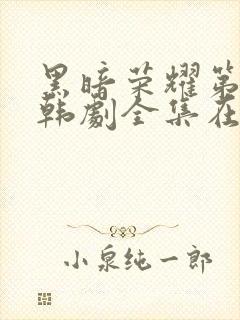 黑暗荣耀第
韩剧全集在
小泉纯一郎